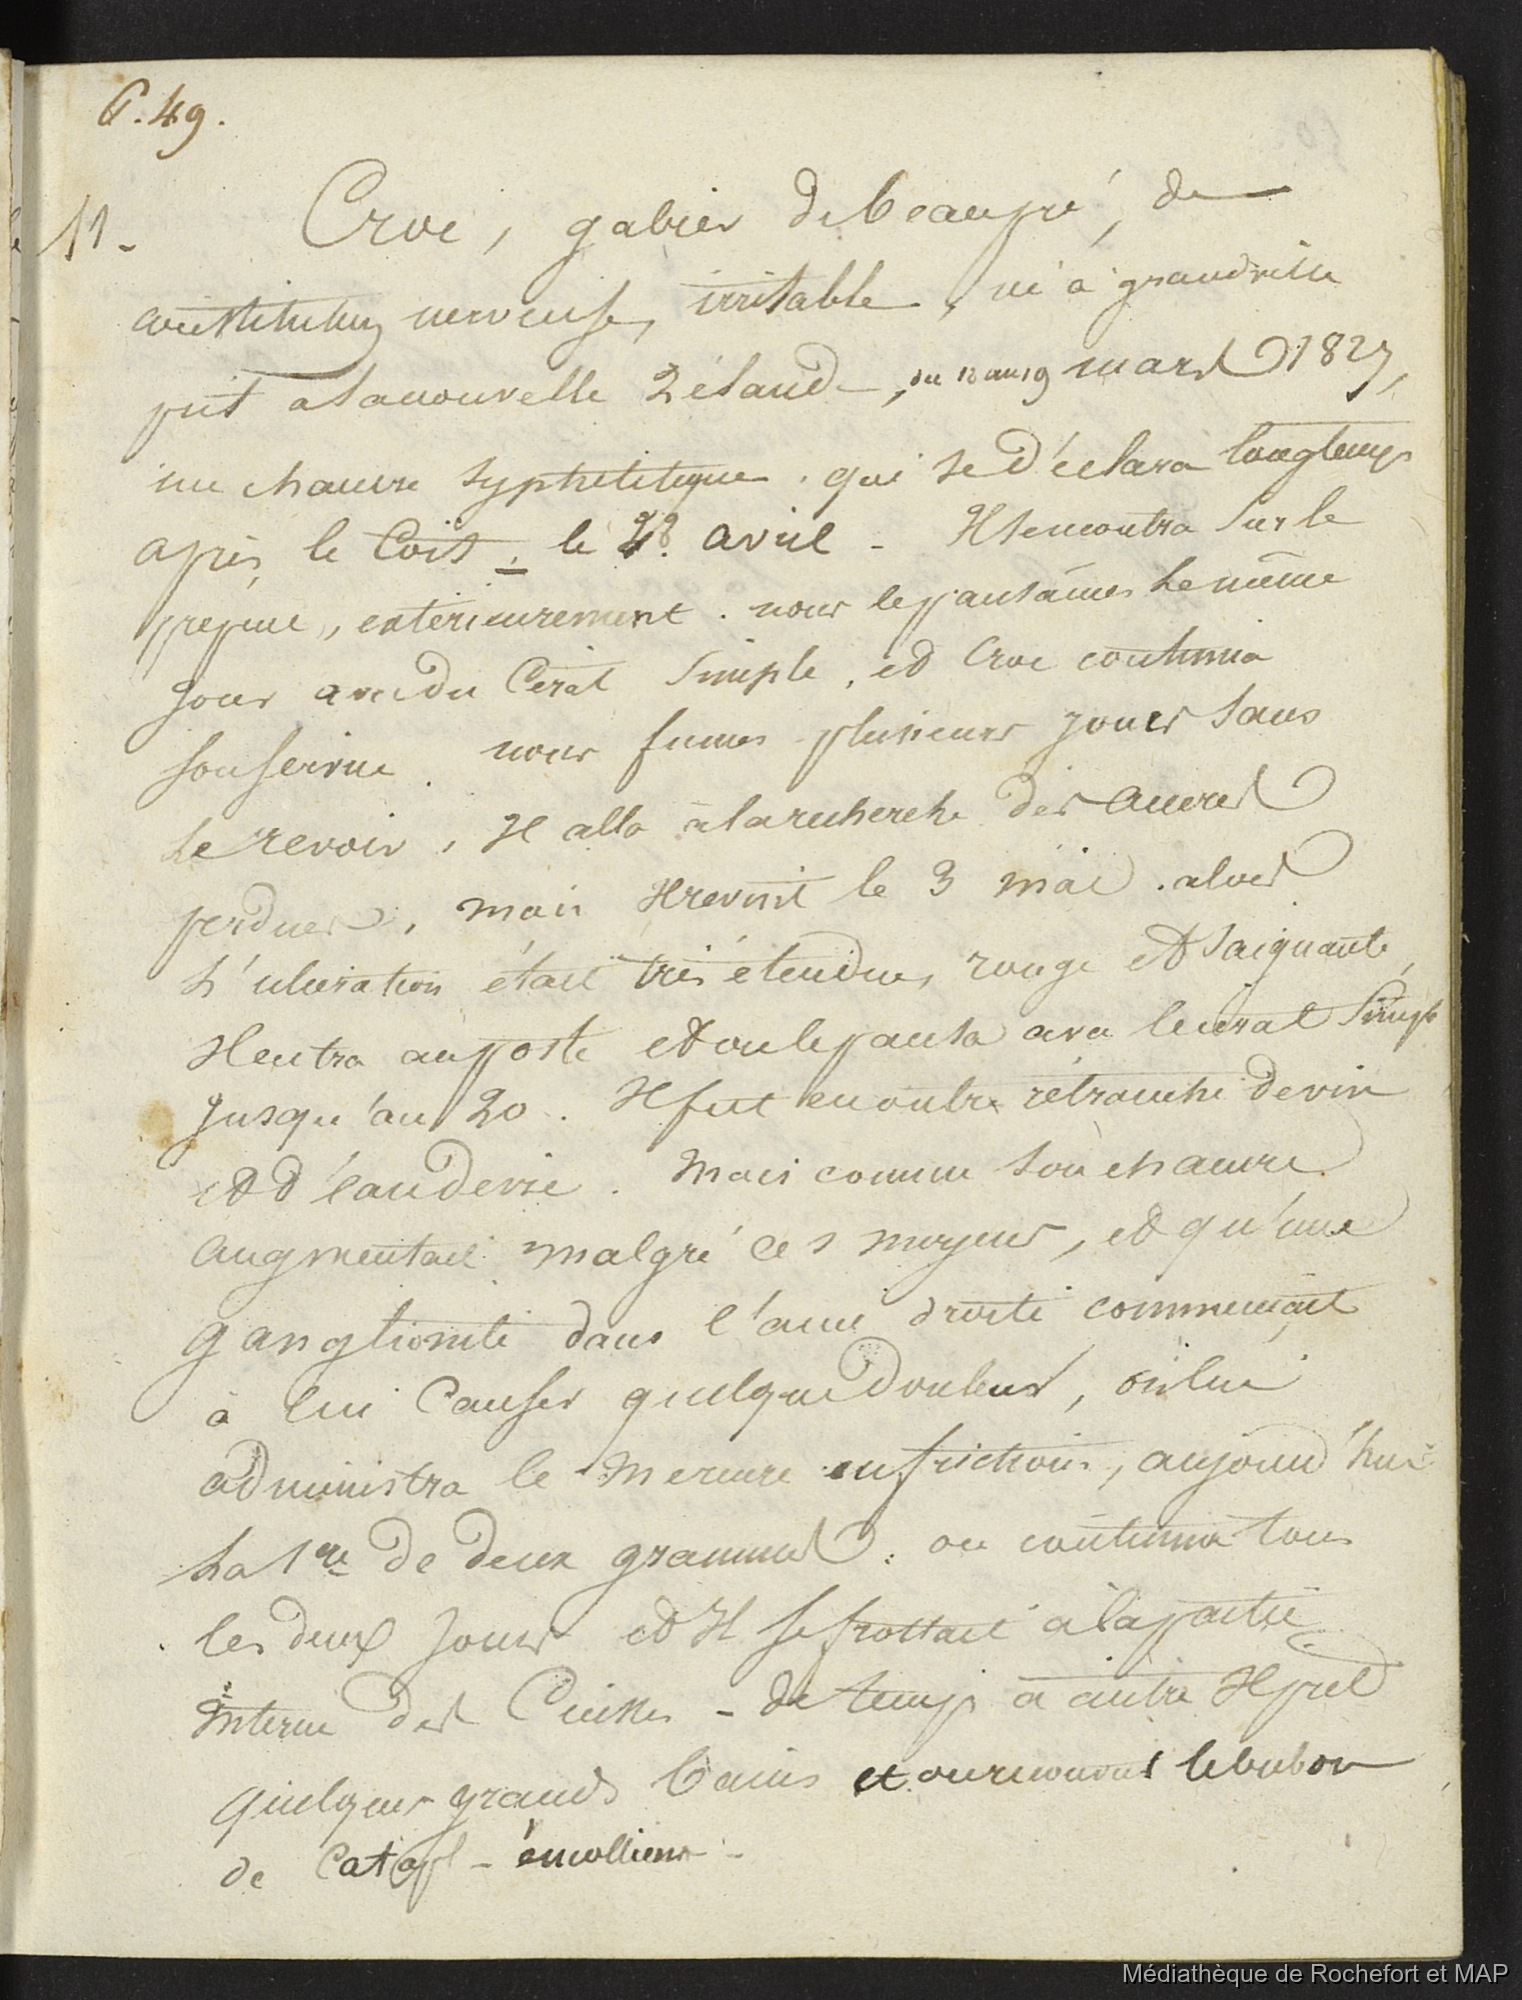 P. 49.
11 -
Croc, gabier de beaupré, de
constitution nerveuse, irritable, né à grandville
prit a la nouvelle Zélande, du 12 au 19 mars 1827,
un chancre syphilitique. qui se déclara longtemps
après le Coit, le 28. avril - Il se montra sur le
prépuce, extérieurement. nous le pansâmes le même
jour avec du Cérat simple, et Croc continua
son service. nous fumes plusieurs jours sans
le revoir, Il alla à la recherche des ancres
perdues, mais Il revint le 3 mai. alors
l'ulcération était très étendue, rouge et saignante,
Il entra au poste et on le pansa avec le cérat simple
jusqu'au 20. Il fut en outre retranché de vin
et d'eau de vie. Mais comme son chancre
augmentait malgré ces moyens, et qu'une
ganglionite dans l'aine droite commençait
à lui causer quelque douleur, on lui
administra le mercure en frictions, aujourd'hui
la 1ere de deux grammes. on continua tous
les deux jours et Il se frottait à la partie
interne des Cuisses - de temps à autre Il prit
quelques grands bains et on recouvrit le bubon
de Catapl - émolliens -
Médiathèque de Rochefort et MAP